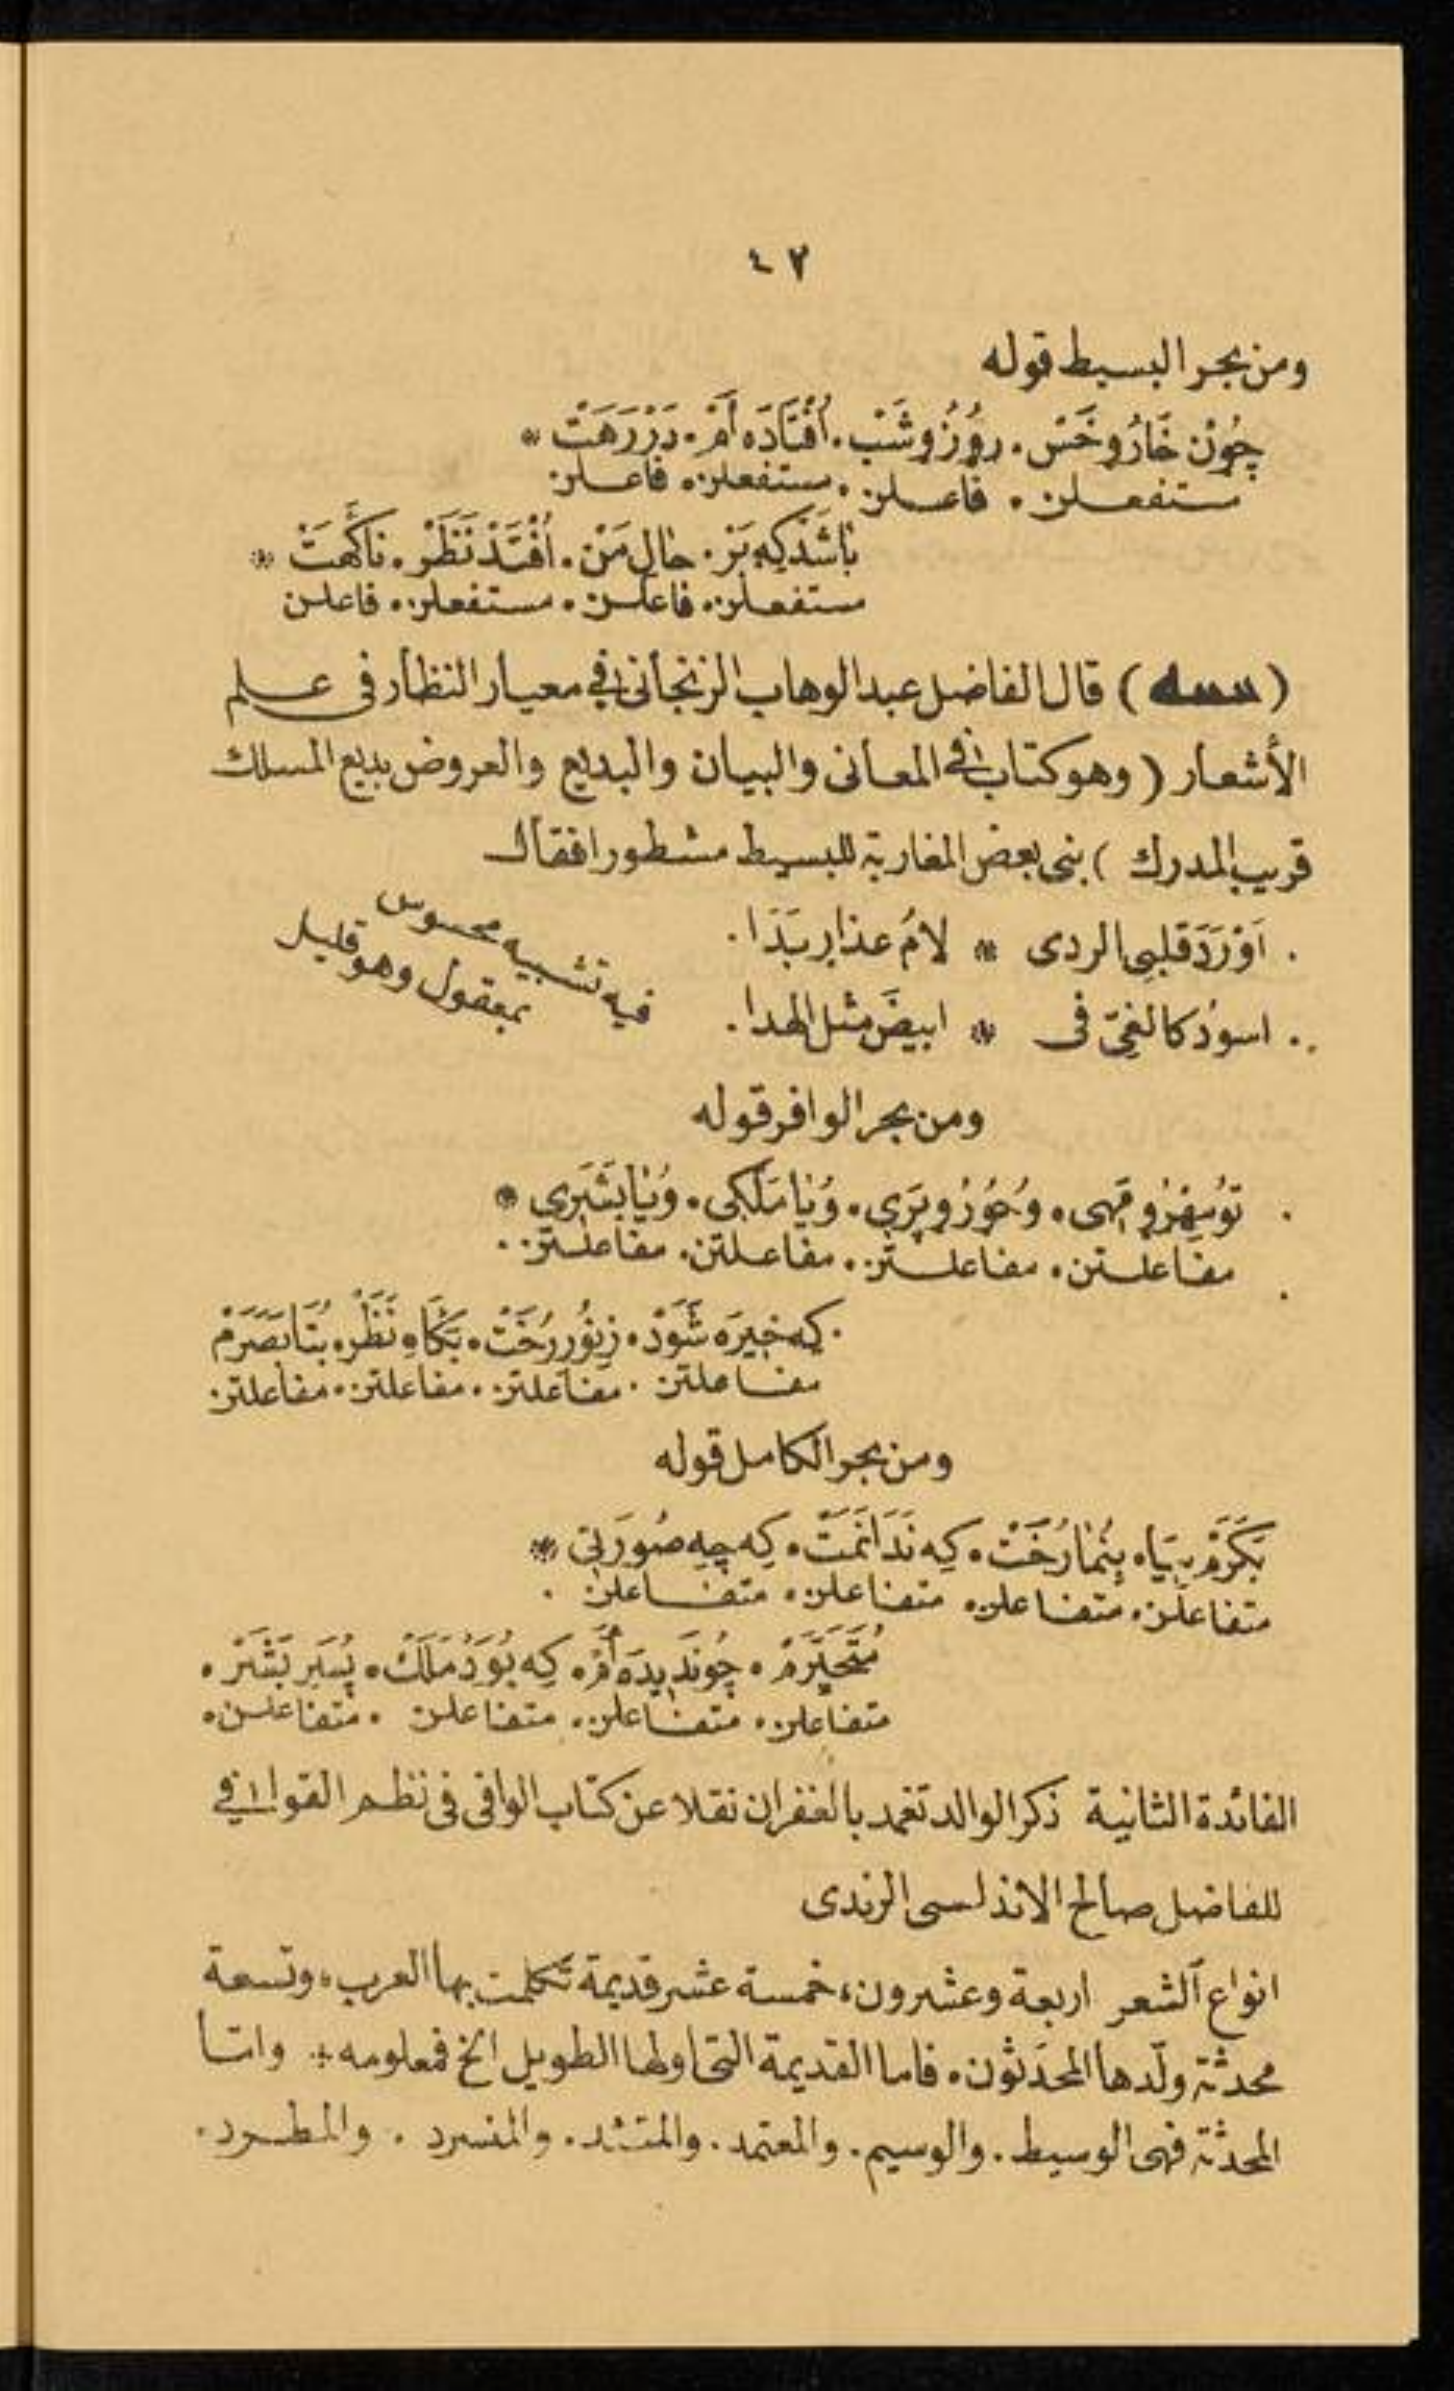 ٤٢
ومن بحر البسيط قوله
چُونْ خَارُ وخَسْ . روُزُ وشَبْ . اُفْتَادَه اَمْ . دَرْ رَهَتْ *
مستفعلن . فاعلن . مستفعلن . فاعلن
بَاشَدْ كِه بَرْ . حَالِ مَنْ . اُفْتَدْ نَظَرْ . نَاكَهَتْ *
مستفعلن . فاعلن . مستفعلن . فاعلن
( ) قال الفاضل عبد الوهاب الزنجانى فى معيار النظار فى علم
الأشعار ( وهو كتاب فى المعانى والبيان والبديع والعروض بديع المسلك
قريب المدرك ) بنى بعض المغاربة للبسيط مشطورا فقال
. اَوْرَدَ قلبى الردى * لامُ عذارٍ بَدَا .
. اسودُ كالغىّ فى * ابيضَ مثل الهدا .
فيه تشبيه محسوس
بمعقول وهو قليل
ومن بحر الوافر قوله
. تو مِهْرُ ومَهى . وُحُورُ وپَرِى . وُيَا مَلَكِى . وُيَا بَشَرِى *
مفاعلتن . مفاعلتن . مفاعلتن . مفاعلتن .
. كِه خِيرَه شَوَدْ . زِنُورِ رُخَتْ . بَكَاهِ نَظَرْ . بُتَا بَصَرَمْ
مفاعلتن . مفاعلتن . مفاعلتن . مفاعلتن
ومن بحر الكامل قوله
بَكَرَمْ بِيَا . بِنُمَا رُخَتْ . كِه نَدَانَمَتْ . كِه چِه صُورَتِى *
متفاعلن . متفاعلن . متفاعلن . متفاعلن .
مُتَحَيِّرَمْ . چُو نَدِيدَه اَمْ . كِه بُوَدْ مَلَكْ . پُسَرِ بَشَرْ .
متفاعلن . متفاعلن . متفاعلن . متفاعلن .
الفائدة الثانية ذكر الوالد تغمد بالغفران نقلا عن كتاب الوافى فى نظم القوافى
للفاضل صالح الاندلسى الرندى
انواع الشعر اربعة وعشرون ، خمسة عشر قديمة تكلمت بها العرب ، وتسعة
محدثة ولّدها المحدَثون . فاما القديمة التى اولها الطويل الخ فمعلومه * واما
المحدثة فهى الوسيط . والوسيم . والمعتمد . والمتئد . والمنسرد . والمطرد .